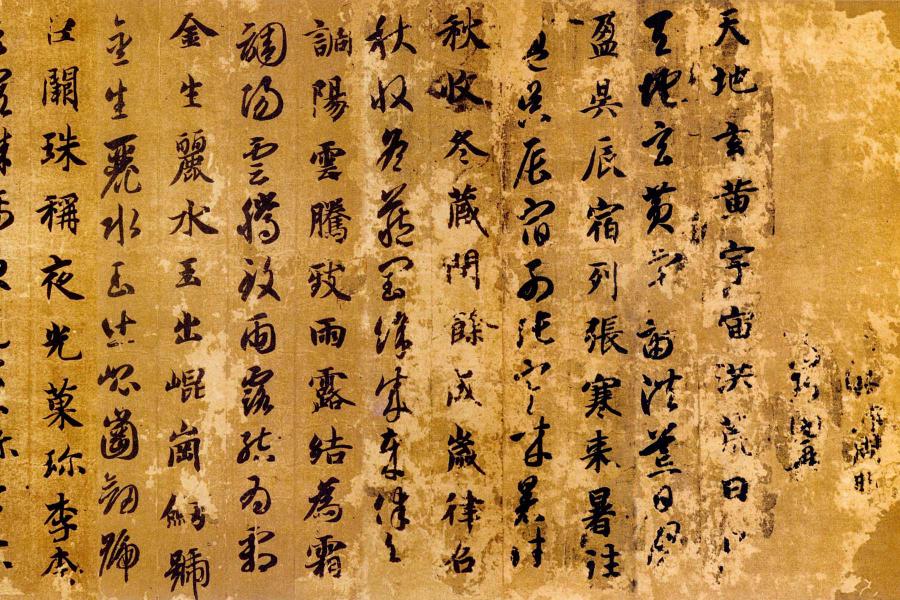 天地玄黄宇宙洪荒日
天地玄黄宇宙洪荒日月
盈昃辰宿列張寒来暑往
盈昃辰宿列張寒来暑往
秋收冬藏閏餘成歲律召
秋收冬藏閏餘成歲律召
調陽雲騰致雨露結為霜
調陽雲騰致雨露結為霜
金生麗水玉出崐崗劒號
金生麗水玉出崐崗劒號
巨闕珠稱夜光菓珍李柰